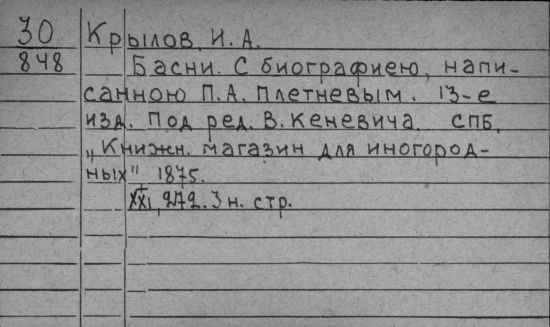 30 Крылов, И. А.
848 Басни. С биографиею, напи-
санною П. А. Плетневым. 13-е
изд. Под ред. В. Кеневича. СПБ,
„Книжн. магазин для иногород-
ных" 1875.
XXI, 272. 3 н. стр.